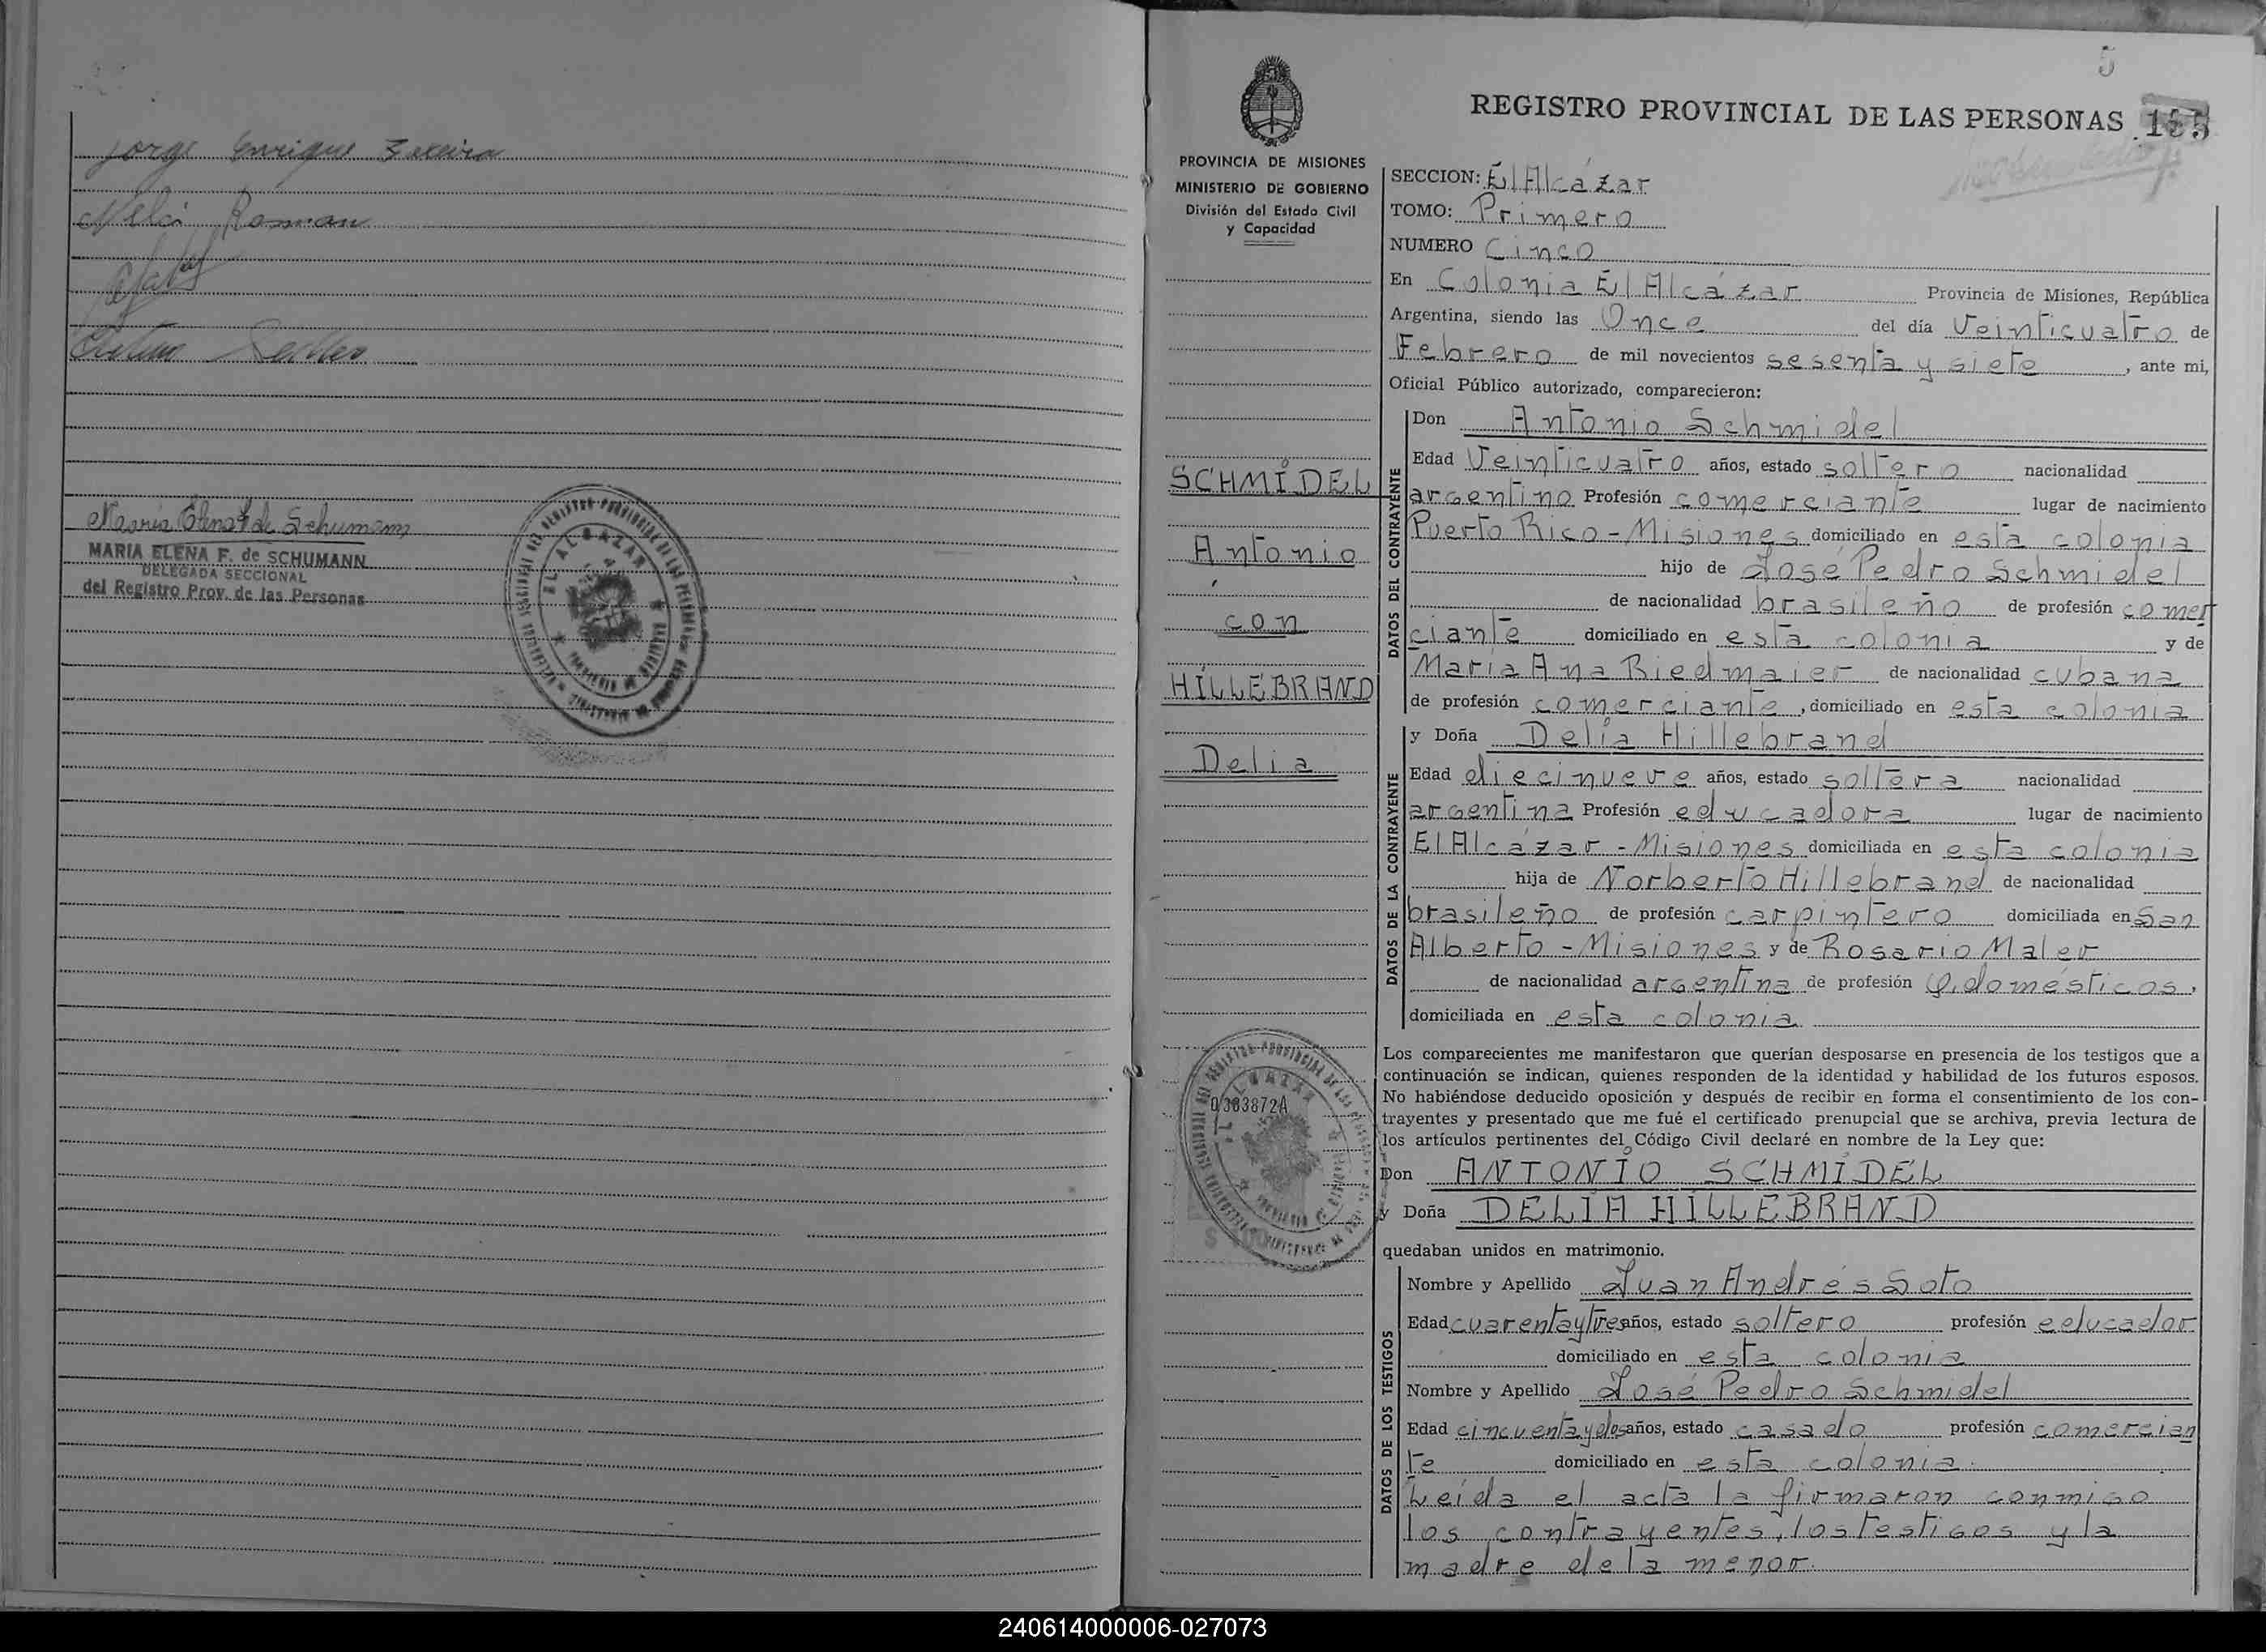 Jorge Enrique
Roman
María Elena F de Schumann
MARIA ELENA F. de SCHUMANN
DELEGADA SECCIONAL
del Registro Prov. de las Personas
EL ALCAZAR
5
REGISTRO PROVINCIAL DE LAS PERSONAS
PROVINCIA DE MISIONES
MINISTERIO DE GOBIERNO
División del Estado Civil
y Capacidad
SCHMIDEL
Antonio
con
HILLEBRAND
Delia
0383872A
SECCION: El Alcázar
TOMO: Primero
NUMERO Cinco
En Colonia El Alcázar Provincia de Misiones, República
Argentina, siendo las Once del día Veinticuatro de
Febrero de mil novecientos sesenta y siete, ante mi,
Oficial Público autorizado, comparecieron:
DATOS DEL CONTRAYENTE
Don Antonio Schmidel
Edad Veinticuatro años, estado soltero nacionalidad
argentino Profesión comerciante lugar de nacimiento
Puerto Rico - Misiones domiciliado en esta colonia
hijo de José Pedro Schmidel
de nacionalidad brasileño de profesión comer
ciante domiciliado en esta colonia y de
María Ana Riedmaier de nacionalidad cubana
de profesión comerciante, domiciliado en esta colonia
DATOS DE LA CONTRAYENTE
y Doña Delia Hillebrand
Edad diecinueve años, estado soltera nacionalidad
argentina Profesión educadora lugar de nacimiento
El Alcázar - Misiones domiciliada en esta colonia
hija de Norberto Hillebrand de nacionalidad
brasileño de profesión carpintero domiciliada en San
Alberto - Misiones y de Rosario Maler
de nacionalidad argentina de profesión Q. domésticos,
domiciliada en esta colonia
Los comparecientes me manifestaron que querían desposarse en presencia de los testigos que a
continuación se indican, quienes responden de la identidad y habilidad de los futuros esposos.
No habiéndose deducido oposición y después de recibir en forma el consentimiento de los con-
trayentes y presentado que me fué el certificado prenupcial que se archiva, previa lectura de
los artículos pertinentes del Código Civil declaré en nombre de la Ley que:
Don ANTONIO SCHMIDEL
y Doña DELIA HILLEBRAND
quedaban unidos en matrimonio.
DATOS DE LOS TESTIGOS
Nombre y Apellido Juan Andrés Soto
Edad cuarenta y tres años, estado soltero profesión educador
domiciliado en esta colonia
Nombre y Apellido José Pedro Schmidel
Edad cincuenta y dos años, estado casado profesión comercian
te domiciliado en esta colonia.
Leída el acta la firmaron conmigo
los contrayentes, los testigos y la
madre de la menor.
240614000006-027073